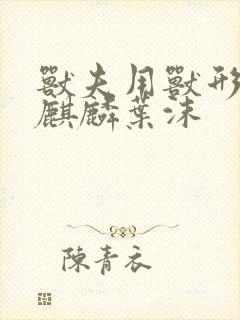 獸夫用獸形
麒麟葉沫
陳青衣